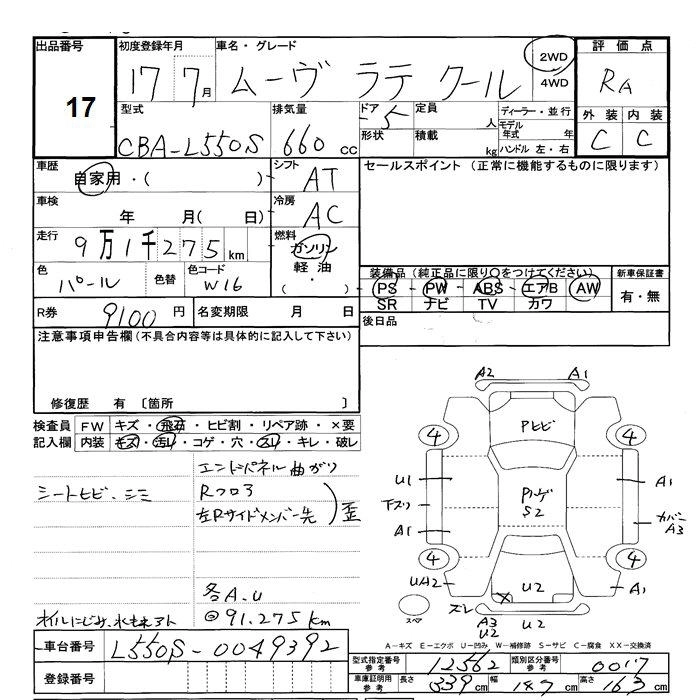 出品番号
17
初度登録年月
17 7月
車名・グレード
ムーヴ ラテ クール
2WD
4WD
評価点
RA
外装 内装
C C
型式
CBA-L550S
排気量
660 cc
ドア 5
形状
定員 人
積載 kg
ディーラー・並行
モデル年式 年
ハンドル 左・右
車歴
自家用・( )
シフト
AT
セールスポイント (正常に機能するものに限ります)
車検
年 月( 日)
冷房
AC
走行
9万1千275km
燃料
ガソリン
軽油
・( )
色
パール
色替
色コード
W16
装備品(純正品に限り○をつけてください)
PS・PW・ABS・エアB・AW
SR ナビ TV カワ
新車保証書
有・無
R券
9100円
名変期限 月 日
後日品
注意事項申告欄(不具合内容等は具体的に記入して下さい)
修復歴 有 〔箇所 〕
検査員記入欄
FW キズ・飛石・ヒビ割・リペア跡・×要
内装 キズ・汚れ・コゲ・穴・スレ・キレ・破レ
エンドパネル曲がり
シートヒビ、シミ
Rフロア
左Rサイドメンバー先
歪
各A.U
オイルにじみ、水もれアト
@91.275km
A2 A1
Pヒビ
4 4
U1
A1
下スリ
Pハゲ
S2
A1
カバー
A3
4 4
UA2
A1
U2
X
スペア
ズレ
A3
U2
U2
A-キズ E-エクボ U-凹み W-補修跡 S-サビ C-腐食 XX-交換済
車台番号
L550S-0049392
登録番号
型式指定番号 参考
12562
類別区分番号 参考
0017
車庫証明用 参考
長さ 339cm 幅 147cm 高さ 163cm